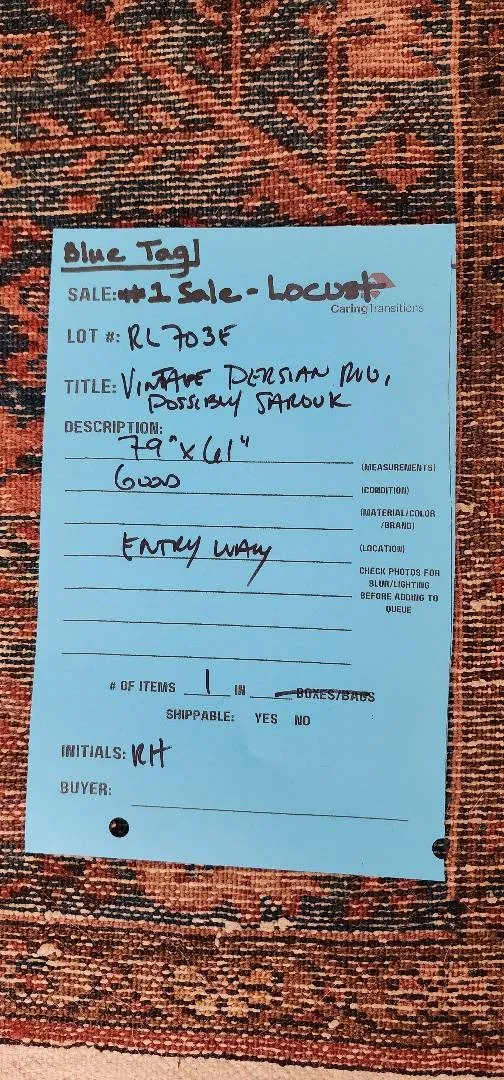 Blue Tag
SALE: #1 Sale - Locust
CaringTransitions
LOT #: RL703F
TITLE: VINTAGE PERSIAN RUG,
POSSIBLY SAROUK
DESCRIPTION:
79" x 61"
(MEASUREMENTS)
GOOD
(CONDITION)
(MATERIAL/COLOR
/BRAND)
ENTRY WAY
(LOCATION)
CHECK PHOTOS FOR
BLUR/LIGHTING
BEFORE ADDING TO
QUEUE
# OF ITEMS 1 IN BOXES/BAGS
SHIPPABLE: YES NO
INITIALS: RH
BUYER: